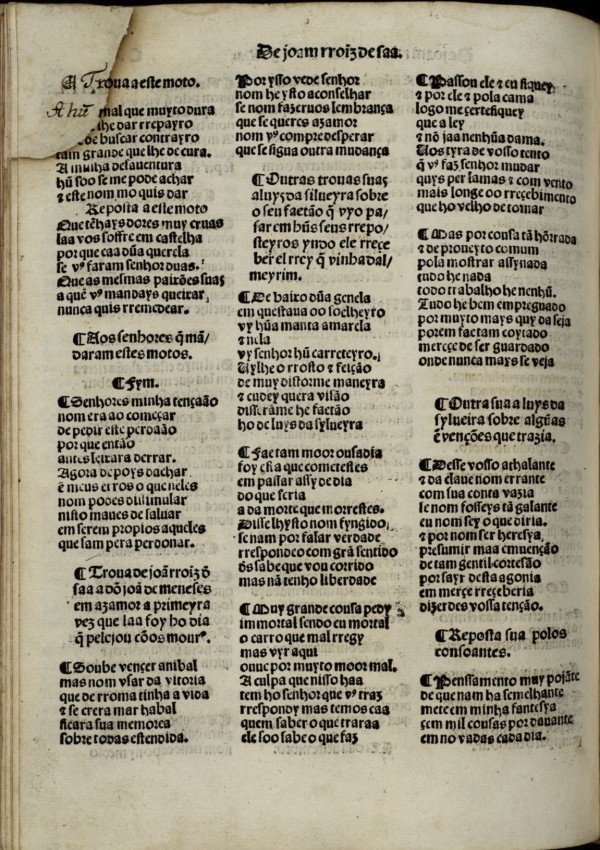 De joam rroiz de saa.
A Troua a este moto.
A hũ mal que muyto dura
lhe dar rrepayro
de buscar contrayro
tam grande que lhe de cura.
A minha desauentura
hũ soo se me pode achar
⁊ este nom mo quis dar
Reposta a este moto
Que tẽhays dores muy cruas
laa vos soffre em castelha
por que caa dũa querela
se vꝰ faram senhor duas.
Que as mesmas paixões suas
a quẽ vꝰ mandays queixar
nunca quis rremedear.
¶ Aos senhores q̃ mã/
daram estes motos.
¶ Fym.
¶ Senhores minha tençaão
nom era ao começar
de pedir este perdaão
por que então
antes leixara derrar.
Agora de poys dachar
ẽ meus erros o que neles
nom podes dissimular
nisto maues de saluar
em serem propios aqueles
que sam pera perdonar.
¶ Troua de joã rroiz d̃
saa a dõ joã de meneses
em azamor a primeyra
vez que laa foy ho dia
q̃ pelejou cõos mourꝰ.
¶ Soube vençer anibal
mas nom vsar da vitoria
que de rroma tinha a vida
⁊ se crera mar habal
ficara sua memorea
sobre todas estendida.
Por ysso vede senhor
nom he ysto aconselhar
se nom fazeruos lembrança
que se queres azamor
nom vꝰ compre desperar
que se sigua outra mudança
¶ Outras trouas suas
a luys da silueyra sobre
o seu faetão q̃ vyo pa/
sar em hũs seus rrepo/
steyros yndo ele rreçe
ber el rrey q̃ vinha dal/
meyrim.
¶ De baixo dũa genela
em questaua oo soelheyro
vy hũa manta amarela
⁊ nela
vy senhor hũ carreteyro.
Uylhe o rrosto ⁊ feição
de muy disforme maneyra
⁊ cudey quera visão
disserãme he faetão
ho de luys da sylueyra
¶ Faetam moor ousadia
foy esta que cometestes
em passar assy de dia
do que seria
a da morte que morrestes.
Disse lhysto nom fyngido,
se nam por falar verdade
rrespondeo com grã sentido
ds̃ sabe que vou corrido
mas nã tenho liberdade
¶ Muy grande cousa pedy
immortal sendo eu mortal
o carro que mal rregy
mas vyr aqui
ouue por muyto moor mal.
A culpa que nisso haa
tem ho senhor que vꝰ traz
rrespondy mas temos caa
quem saber o que traraa
ele soo sabe o que faz
¶ Passou ele ⁊ eu fiquey
⁊ por ele ⁊ pola cama
logo me çertefiquey
que a ley
⁊ nõ jaa nenhũa dama.
Uos tyra de vosso tento
q̃ vꝰ faz senhor mudar
quys per lamas ⁊ com vento
mais longe oo rreçebimento
que ho velho de tomar
¶ Mas por cousa tã hõrrada
⁊ de proueyto comum
pola mostrar assynada
tudo he nada
todo trabalho he nenhũ.
Tudo he bem empreguado
por muyto mays quy da seja
porem faetam coytado
merçe de ser guardado
onde nunca mays se veja
¶ Outra sua a luys da
sylueira sobre algũas
ẽvenções que trazia.
¶ Desse vosso athalante
⁊ da claue nom errante
com sua conta vazia
se nom fosseys tã galante
eu nom sey o que diria.
⁊ por nom ser heresya,
presumir maa emuenção
de tam gentil cortesão
por sayr desta agonia
em merçe rreçeberia
dizerdes vossa tenção.
¶ Reposta sua polos
consoantes.
¶ Penssamento muy pojãte
de que nam ha semelhante
mete em minha fantesya
çem mil cousas por dauante
em no vadas cada dia.